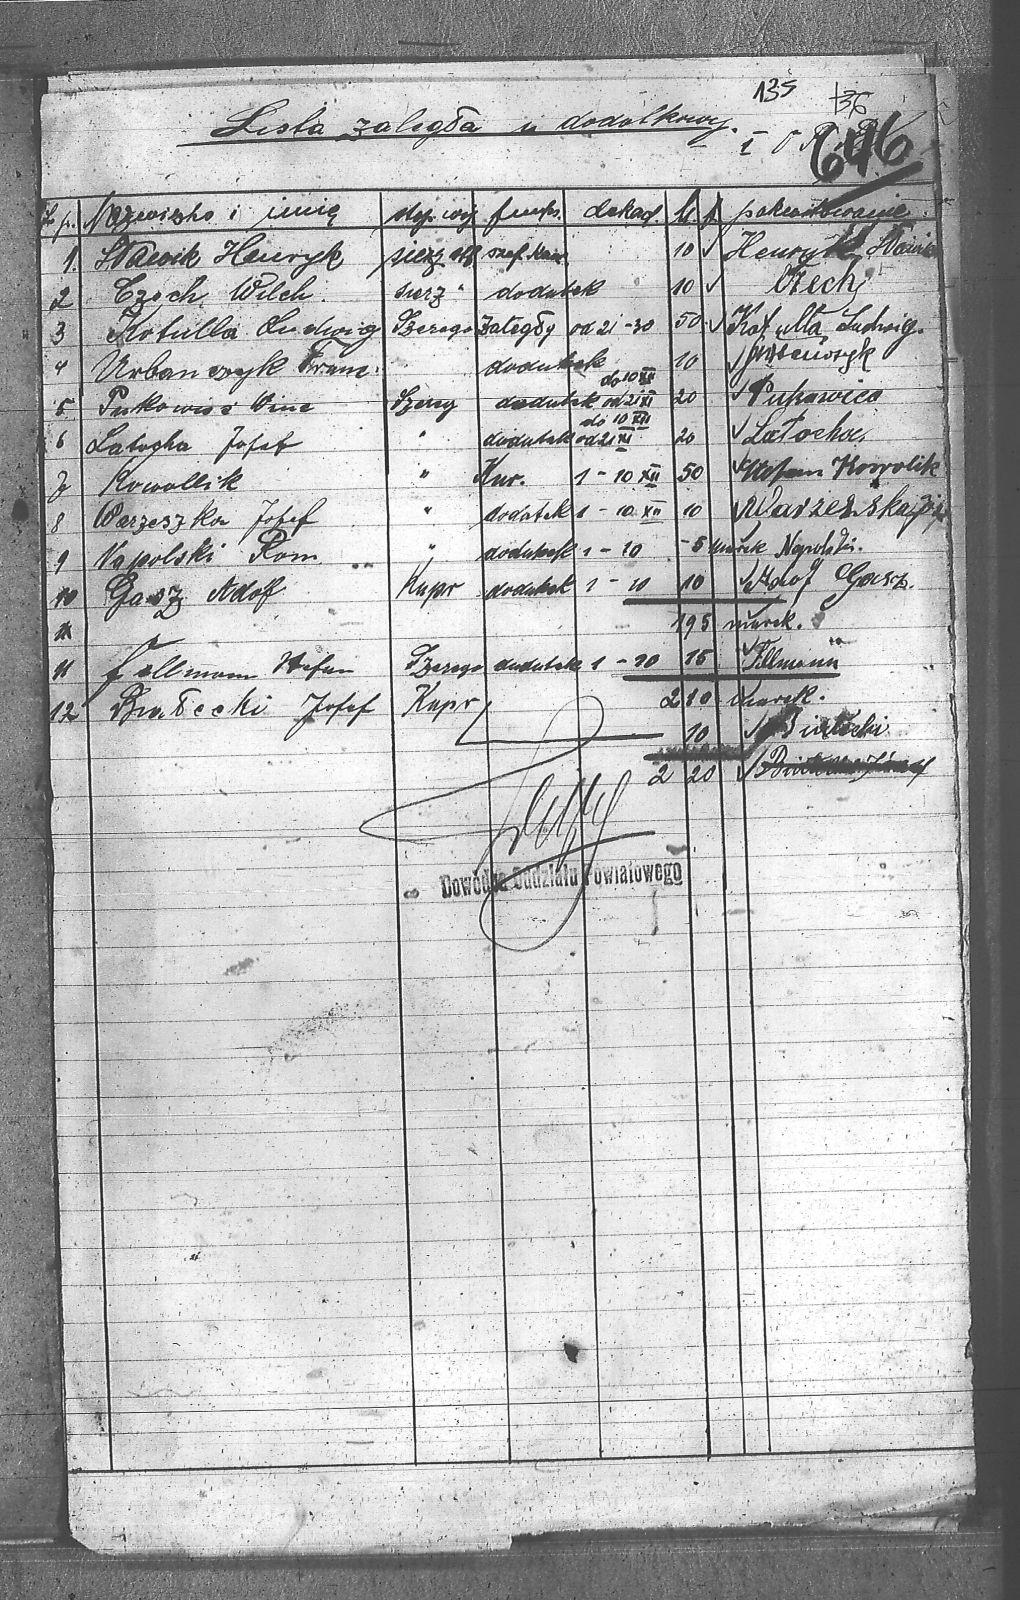 135 136
Lista zaległa i dodatkowy.
646
L. p. Nazwisko i imię stop. woj. funk. dekad. M. f. pokwitowanie
1. Sławik Henryk sierż. szt szef kan. 10 Henryk Sławik
2 Czech Wilh. sierż " dodatek 10 Czech
3 Kotulla Ludwig Szerego zaległy od 21-30 50 Kotulla Ludwig.
4 Urbanczyk Franc. dodatek 10 Urbanczyk
do 10 XII
5 Pukowiec Winc Szereg dodatek od 21 XI 20 Pukowiec
do 10 XII
6 Latocha Josef " dodatek od 21 XI 20 Latocha
7 Kowollik " Kur. 1-10 XII 50 Stefan Kowolik
8 Warzeszka Jozef " dodatek 1-10 XII 10 Warzeszka
9 Napolski Rom. " dodatek 1-10 -5 marek Napolski.
10 Gasz Adolf Kapr dodatek 1-10 10 Adolf Gasz.
11
195 marek.
11 Follmann Stefan Szerego dodatek 1-10 15 Follmann
210 marek.
12 Białecki Josef Kapr
10 Białecki
2 20
Dowódca Oddziału Powiatowego